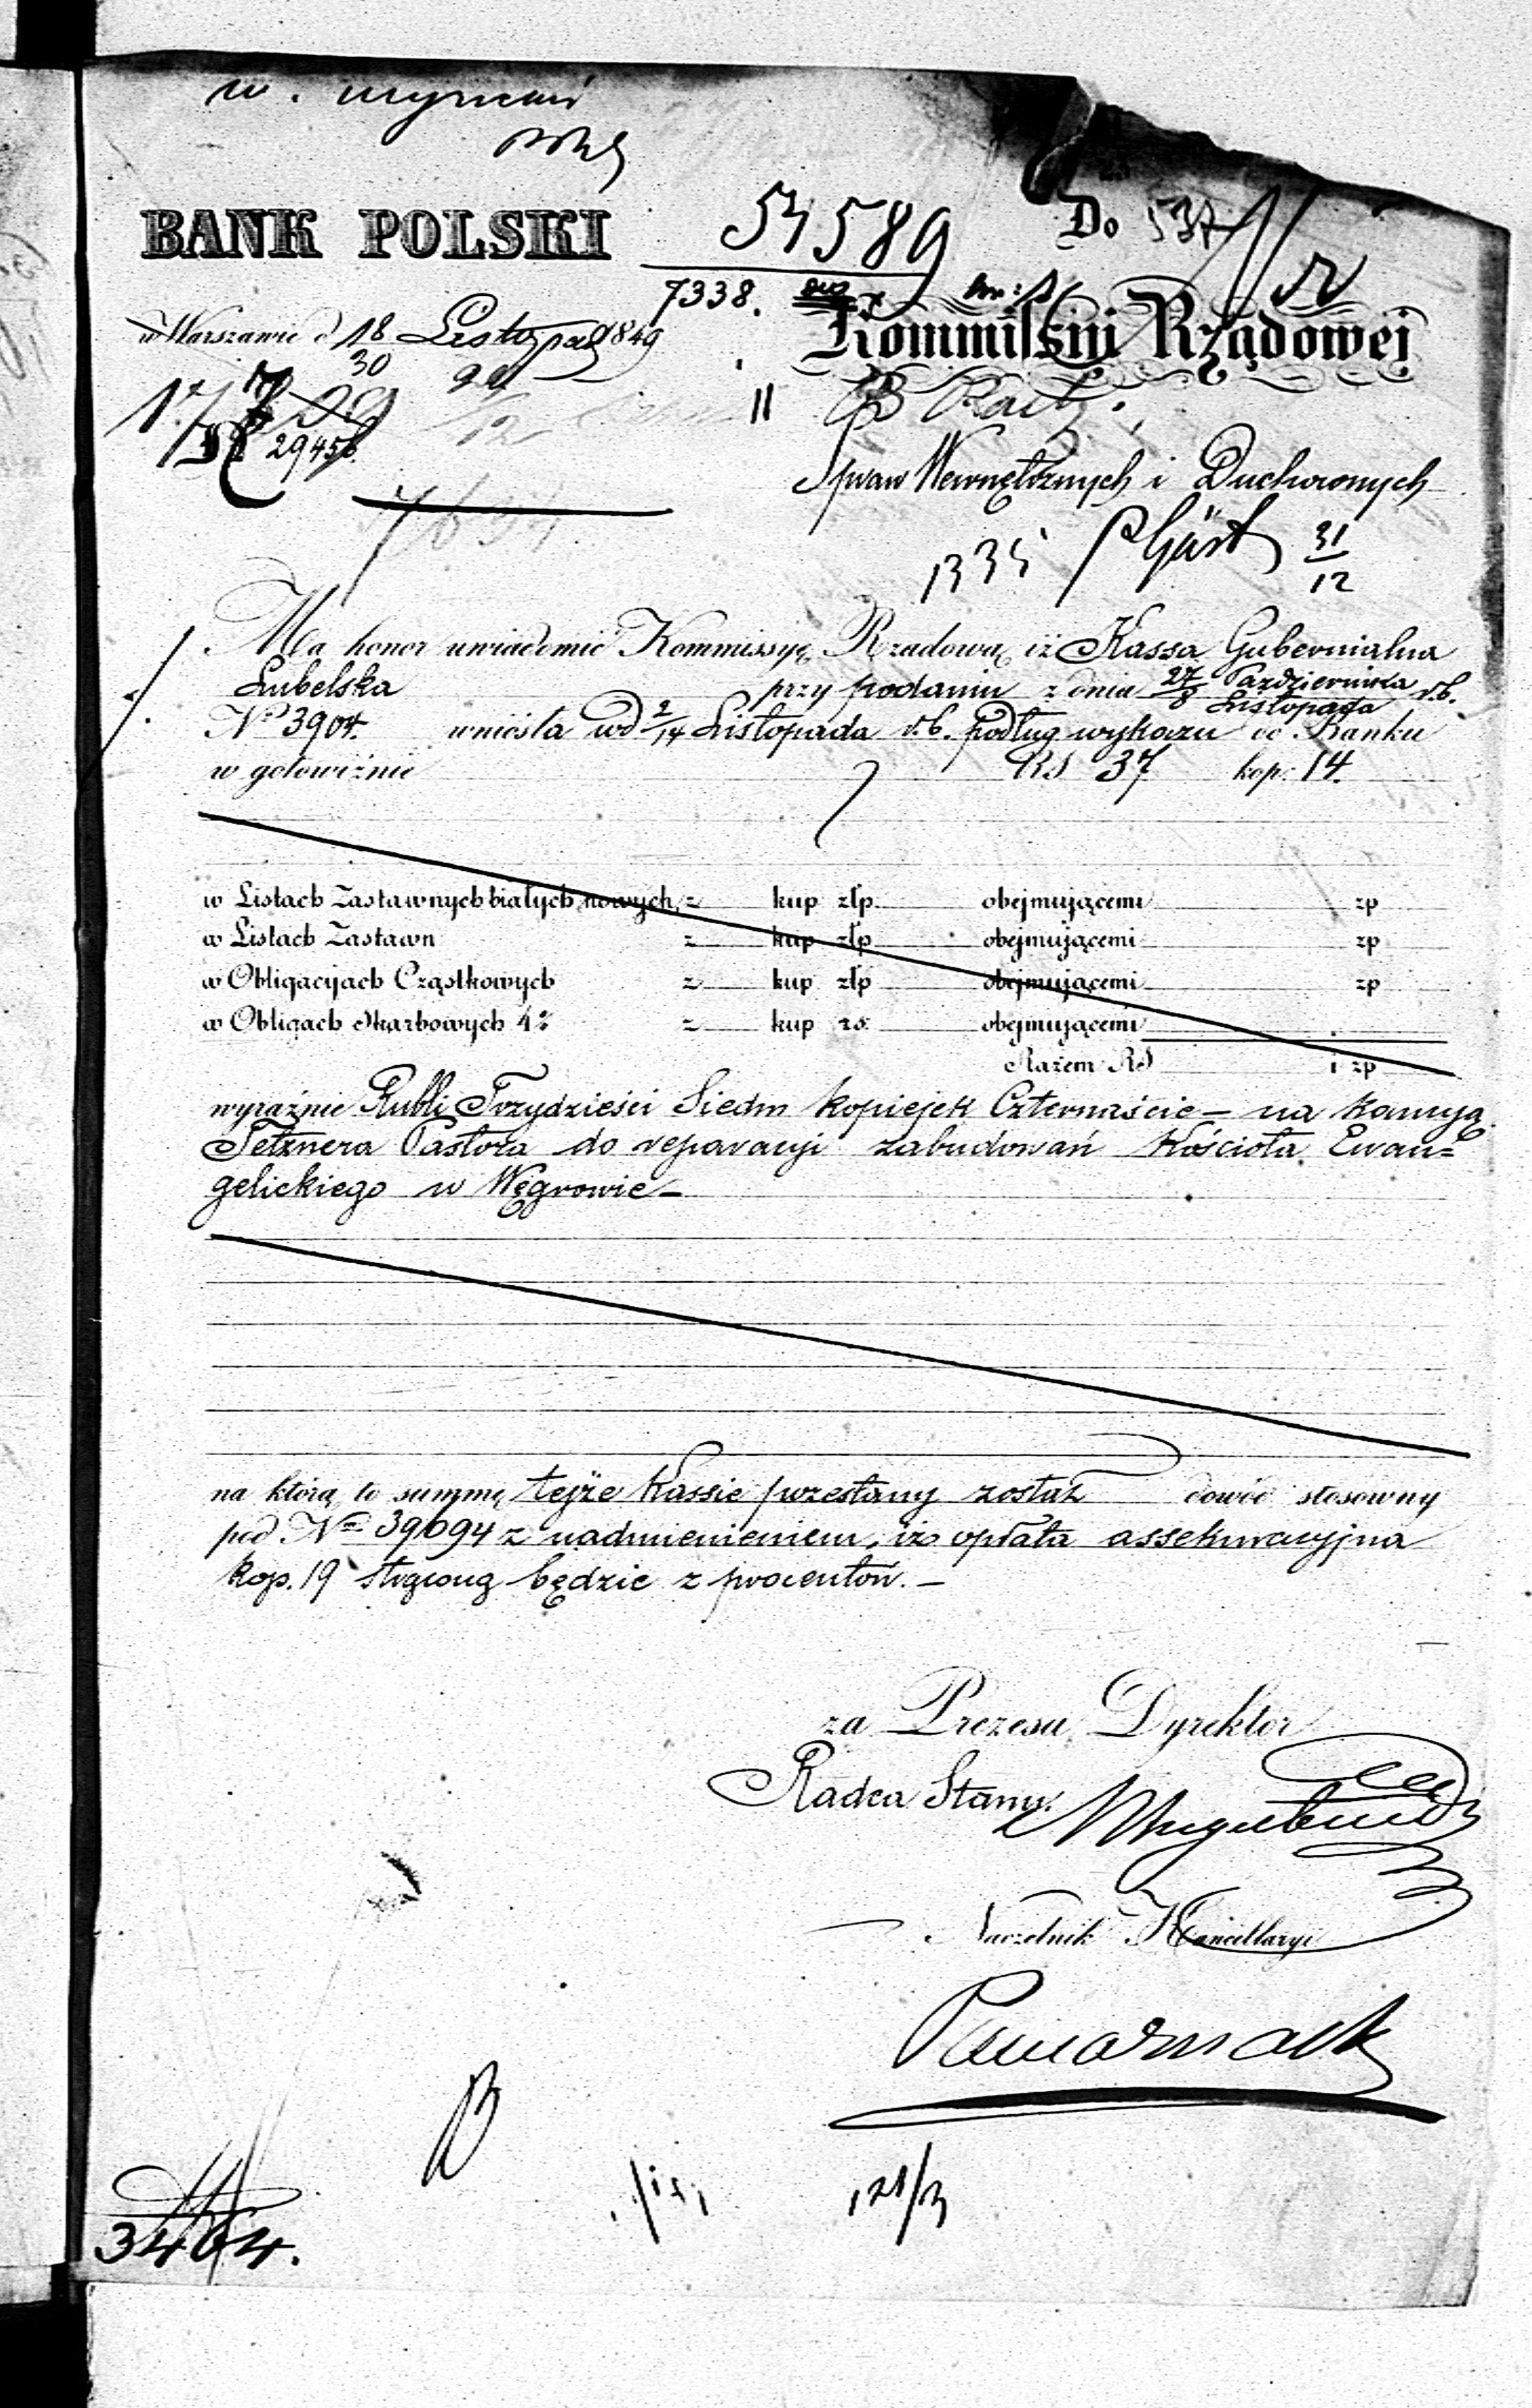 BANK POLSKI
54589
Do 537
7338.
w Warszawie d 18 Listopad 1849
30
Kommissyi Rządowej
29456
Spraw Wewnętrznych i Duchownych
1335
31
12
Ma honor uwiadomić Kommissyę Rządową iż Kassa Gubernialna
Lubelska przy podaniu z dnia 27 Października
8 Listopada r.b.
No 3904. wniosła pod 2/14 Listopada r.b. podług wykazu do Banku
w gotowiźnie RS 37 kop: 14.
w Listach Zastawnych białych nowych, z kup złp obejmującemi zp
w Listach Zastawn z kup złp obejmującemi zp
w Obligacyjach Cząstkowych z kup złp obejmującemi zp
w Obligach Skarbowych 4% z kup rs: obejmującemi
Razem RS i zp
wyraźnie Rubli Trzydzieści Siedm kopiejek Czternaście – na kaucyą
Tetznera Pastora do reparacyi zabudowań Kościoła Ewan=
gelickiego w Węgrowie –
na którą to summę tejże Kassie przesłany został dowód stosowny
pod No 39094 z nadmienieniem, iż opłata assekuracyjna
kop. 19 strącong będzie z procentów. –
za Prezesa, Dyrektor
Radca Stanu.
Naczelnik Kancellaryi
3464.